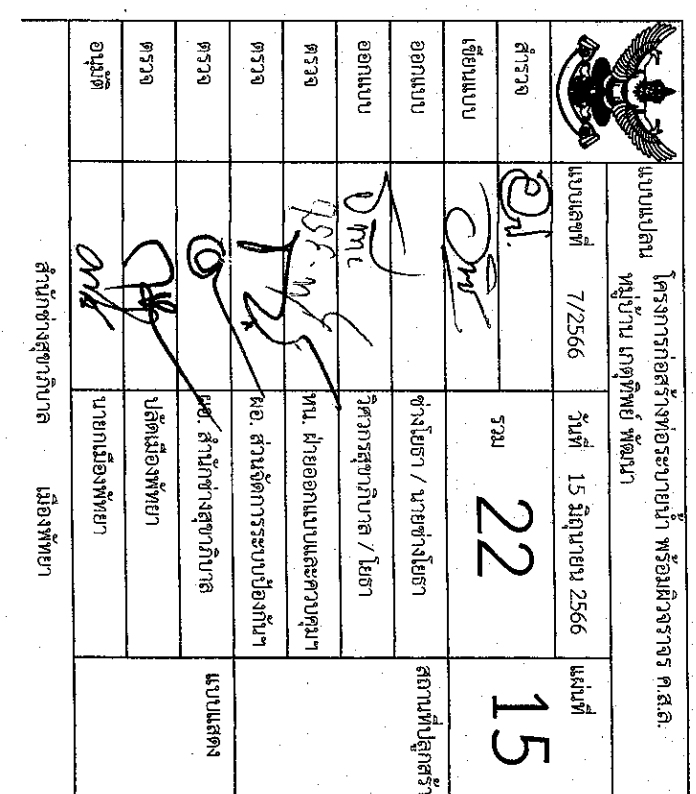 แบบแปลน โครงการก่อสร้างท่อระบายน้ำ พร้อมผิวจราจร ค.ส.ล.
หมู่บ้าน เกตุทิพย์ พัฒนา
แบบเลขที่ 7/2566 วันที่ 15 มิถุนายน 2566 แผ่นที่
สำรวจ รวม 22 15
เขียนแบบ
ออกแบบ ช่างโยธา / นายช่างโยธา สถานที่ปลูกสร้า
ออกแบบ วิศวกรสุขาภิบาล / โยธา
ตรวจ หน. ฝ่ายออกแบบและควบคุมฯ
ตรวจ ผอ. ส่วนจัดการระบบป้องกันฯ
ตรวจ ผอ. สำนักช่างสุขาภิบาล แบบแสดง
ตรวจ ปลัดเมืองพัทยา
อนุมัติ นายกเมืองพัทยา
สำนักช่างสุขาภิบาล เมืองพัทยา